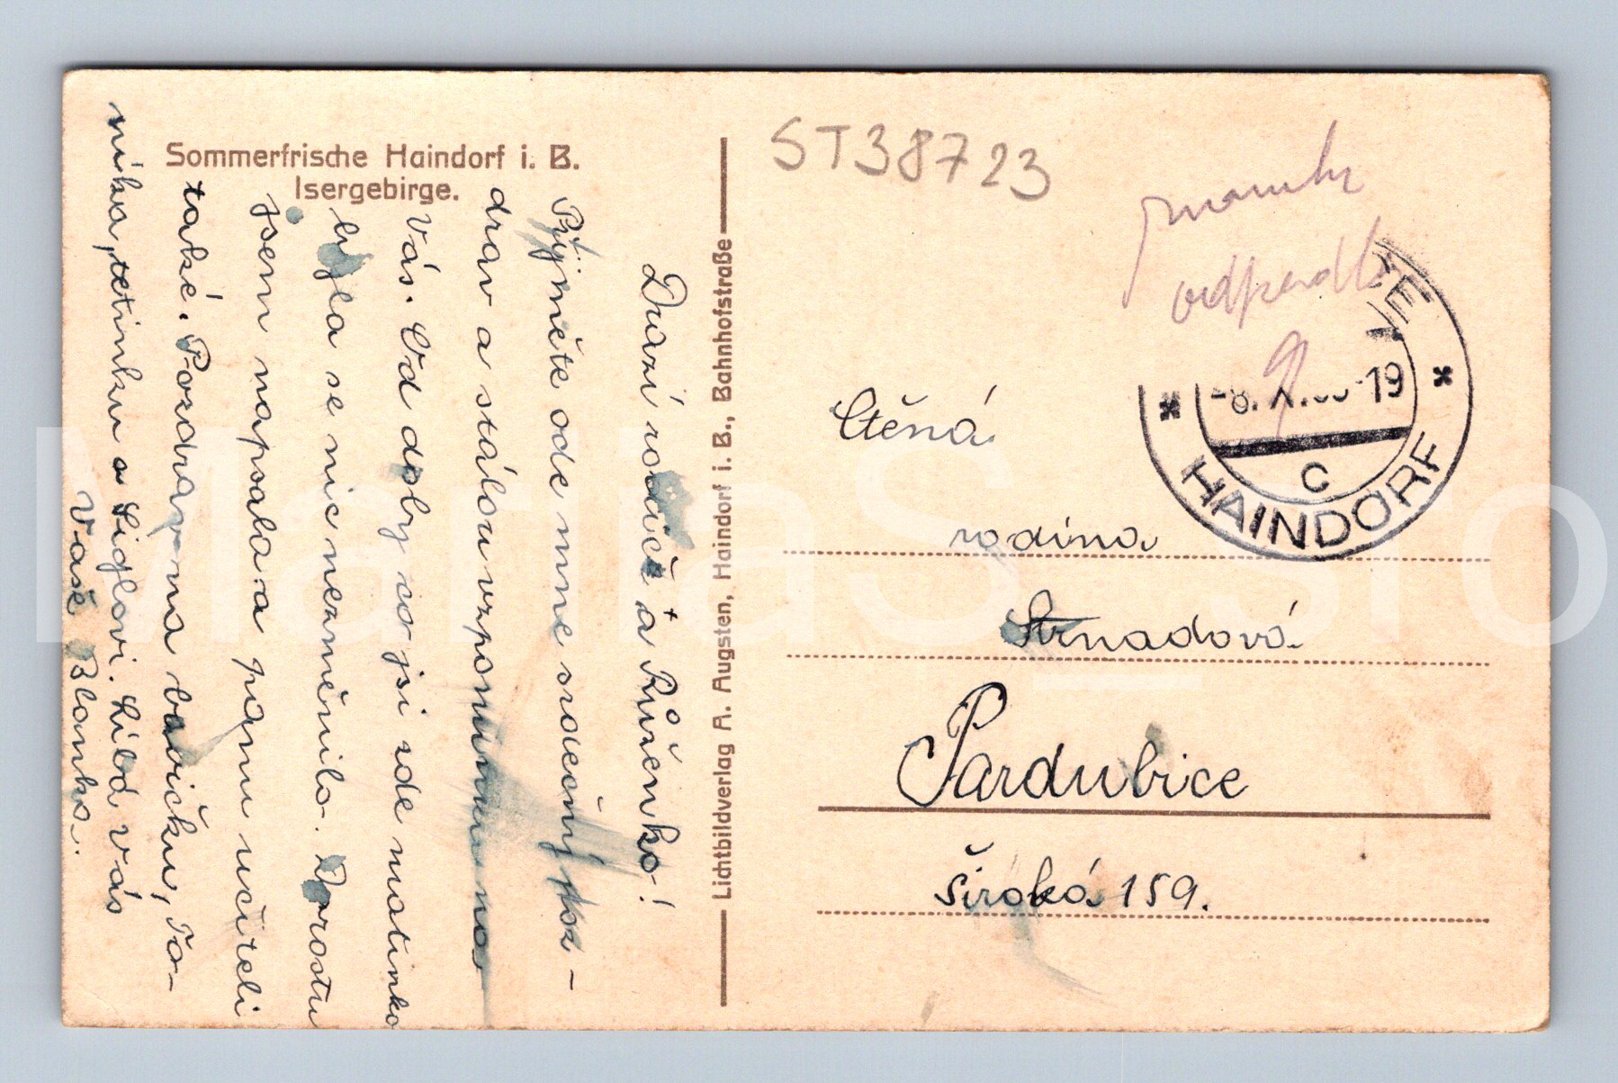 Sommerfrische Haindorf i. B.
Isergebirge.
Drazí rodiče a Růženko!
Přijměte ode mne srdečný poz-
drav a stálou vzpomínku na
Vás. Od doby co jsi zde matinko
byla se nic nezměnilo. Dorostu
jsem napsala a panu učiteli
také. Pozdrav na babičku, To-
níka, tetinku a Siglovi. Líbá vás
Vaše Blanka.
Lichtbildverlag A. Augsten, Haindorf i. B., Bahnhofstraße
ST38723
HAINDORF
C
Ctěná
rodina
Strnadová
Pardubice
Široká 159.
MartaS_sro